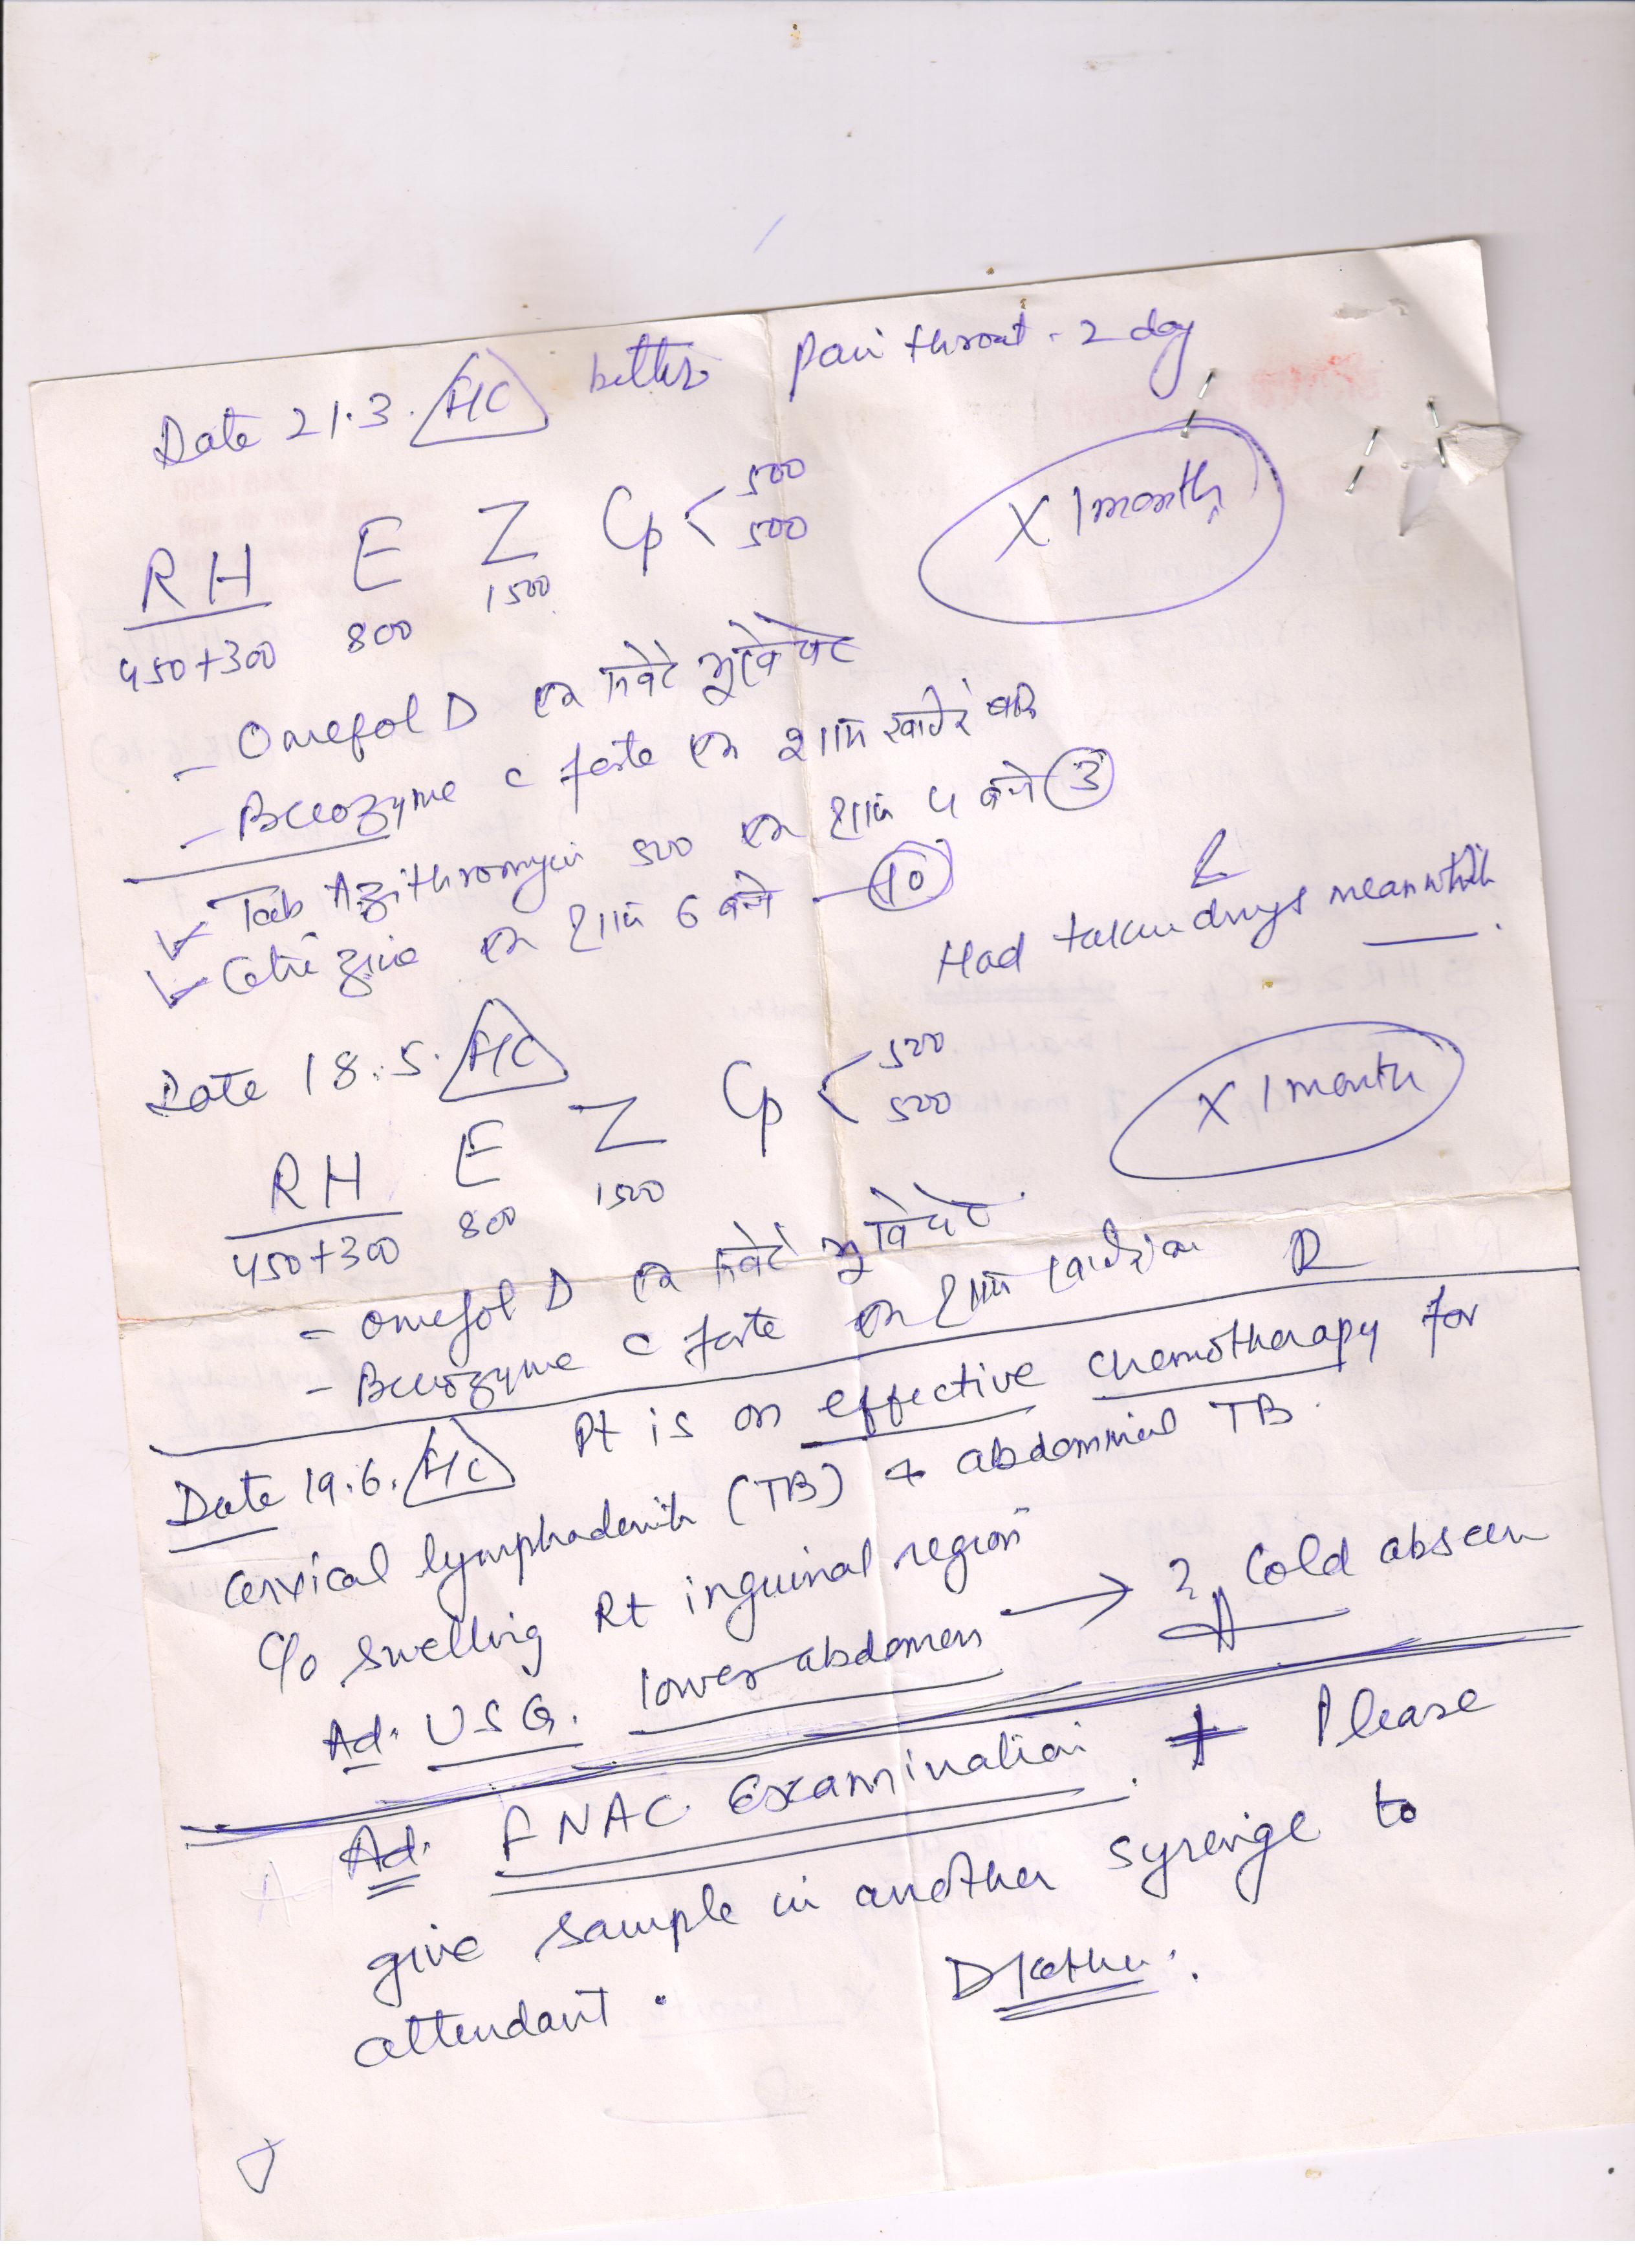 Date 21.3. HC better pain throat - 2 day
RH E Z Cp < 500 500 X 1 month
450+300 800 1500
- Omefol D एक सवेरे भूखे पेट
- Becozyme c forte एक शाम खाने के बाद
✓ Tab Azithromycin 500 एक शाम 4 बजे 3
✓ Cetrizine एक शाम 6 बजे - 10
Had taken drugs meanwhile.
Date 18.5. HC
RH E Z Cp < 500 500 X 1 month
450+300 800 1500
- Omefol D एक सवेरे भूखे पेट
- Becozyme c forte एक शाम
Date 19.6. HC Pt is on effective chemotherapy for
cervical lymphadenitis (TB) + abdominal TB.
C/o swelling Rt inguinal region
Ad. USG. lower abdomen → ? Cold abscess
Ad. FNAC Examination. + Please
give sample in another syrenge to
attendant.